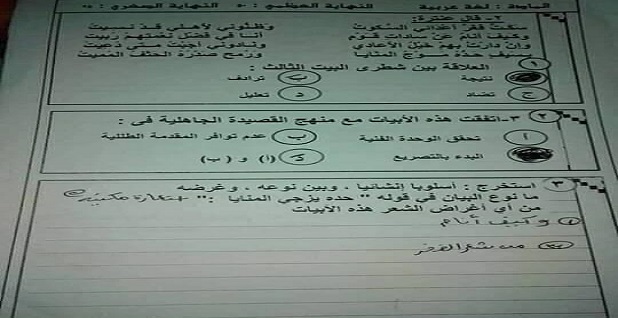 المادة : لغة عربية النهاية العظمى : ٥٠ النهاية الصغرى : ٢٥
٢- قال عنترة:
سكت فغر أعدائي السكوت وظنوني لأهلي قد نسيت
وكيف أنام عن سادات قوم أنا في فضل نعمتهم ربيت
وإن دارت بهم خيل الأعادي ونادوني أجبت متى دعيت
بسيف حده موج المنايا ورمح صدره الحتف المميت
١ العلاقة بين شطرى البيت الثالث :
نتيجة ب ترادف
ج تضاد د تعليل
٢ ٣-اتفقت هذه الأبيات مع منهج القصيدة الجاهلية فى :
أ تحقق الوحدة الفنية ب عدم توافر المقدمة الطللية
البدء بالتصريع (أ) و (ب)
٣ استخرج : أسلوبا إنشائيا ، وبين نوعه ، وغرضه
ما نوع البيان في قوله " حده يزجي المنايا :" استعارة مكنية
من أي أغراض الشعر هذه الأبيات
وكيف أنام
من شعر الفخر